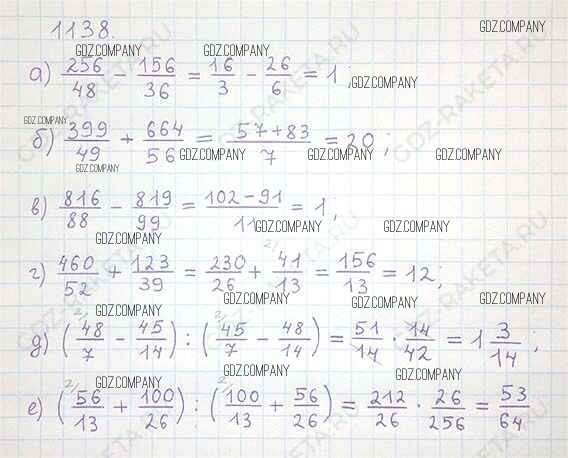 1138.
GDZ.COMPANY
GDZ.COMPANY GDZ.COMPANY
а) 256/48 − 156/36 = 16/3 − 26/6 = 1 ; GDZ.COMPANY
GDZ.COMPANY
б) 399/49 + 664/56 = (57+83)/7 = 20 ;
GDZ.COMPANY GDZ.COMPANY GDZ.COMPANY
GDZ.COMPANY
в) 816/88 − 819/99 = (102−91)/11 = 1 ;
GDZ.COMPANY GDZ.COMPANY
GDZ.COMPANY
г) 460/52 + 123/39 = 230/26 + 41/13 = 156/13 = 12 ;
GDZ.COMPANY GDZ.COMPANY GDZ.COMPANY
GDZ.COMPANY
д) (48/7 − 45/14) : (45/7 − 48/14) = 51/14 · 14/42 = 1 3/14 ;
GDZ.COMPANY GDZ.COMPANY GDZ.COMPANY
е) (56/13 + 100/26) : (100/13 + 56/26) = 212/26 · 26/256 = 53/64
GDZ-RAKETA.RU